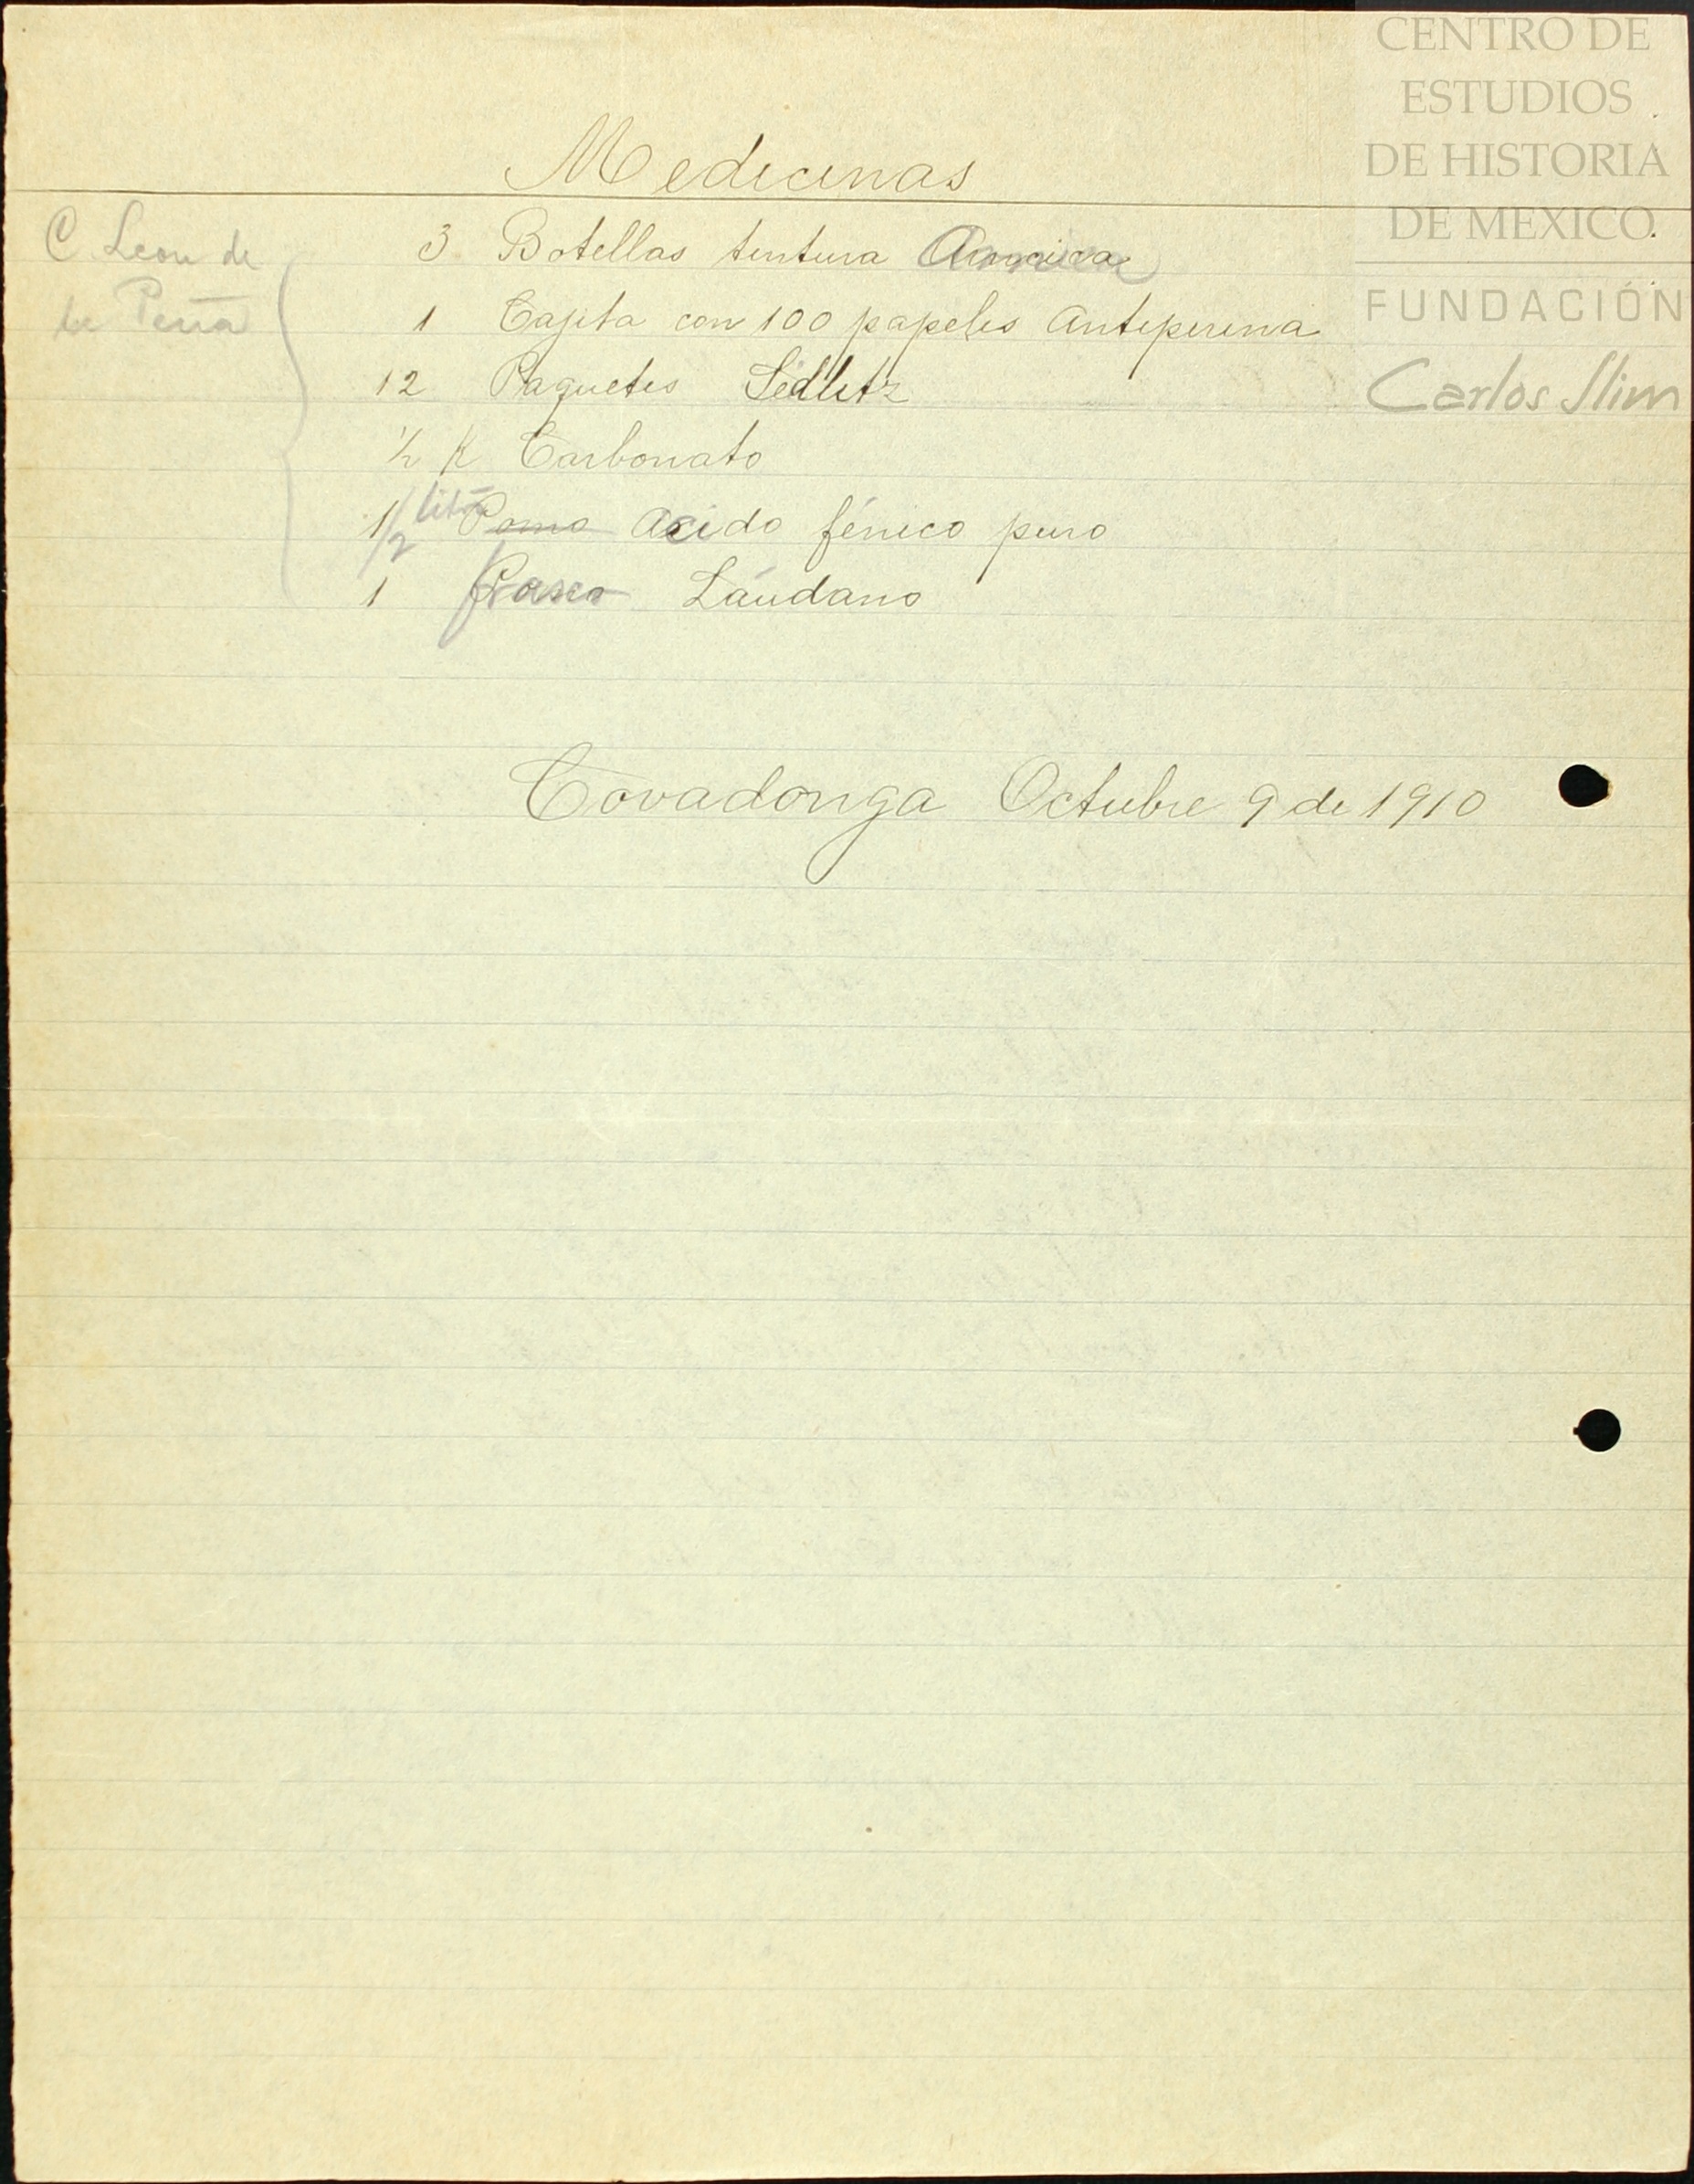 CENTRO DE
ESTUDIOS
DE HISTORIA
DE MEXICO.
FUNDACIÓN
Carlos Slim
Medicinas
C Leon de
la Peña
3 Botellas tintura Arnica
1 Cajita con 100 papeles Antipirina
12 Paquetes Sedlitz
½ K Carbonato
1/2 lito Pomo Acido fénico puro
1 frasco Láudano
Covadonga Octubre 9 de 1910